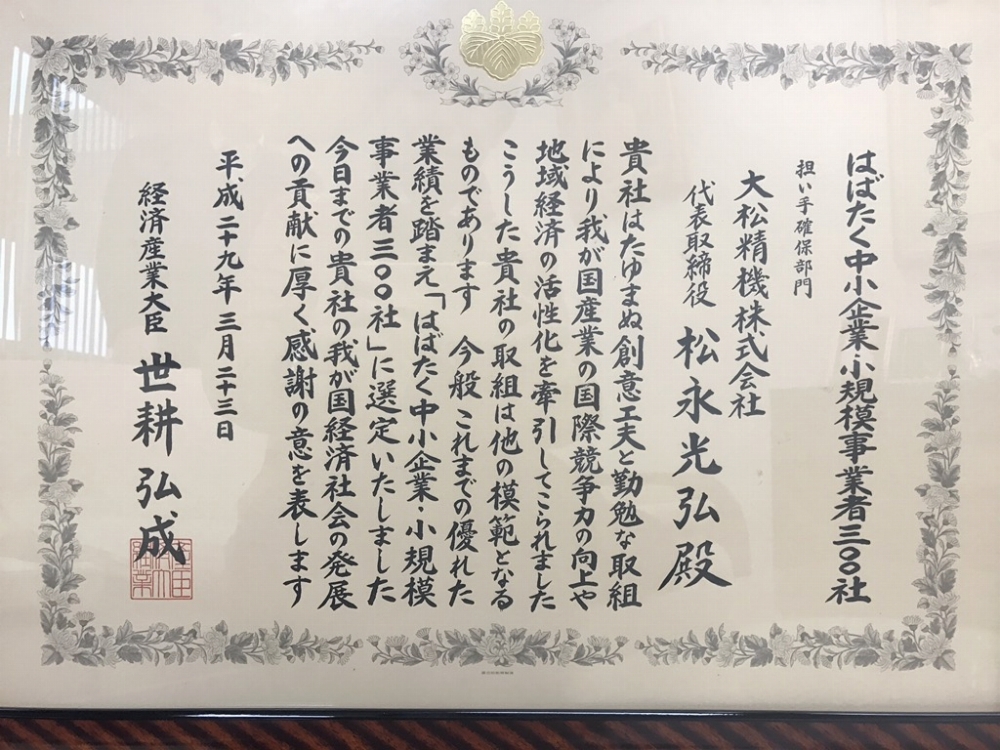 はばたく中小企業・小規模事業者三〇〇社
担い手確保部門
大松精機株式会社
代表取締役 松永光弘殿
貴社はたゆまぬ創意工夫と勤勉な取組
により我が国産業の国際競争力の向上や
地域経済の活性化を牽引してこられました
こうした貴社の取組は他の模範となる
ものであります 今般これまでの優れた
業績を踏まえ「はばたく中小企業・小規模
事業者三〇〇社」に選定いたしました
今日までの貴社の我が国経済社会の発展
への貢献に厚く感謝の意を表します
平成二十九年三月二十三日
経済産業大臣 世耕弘成